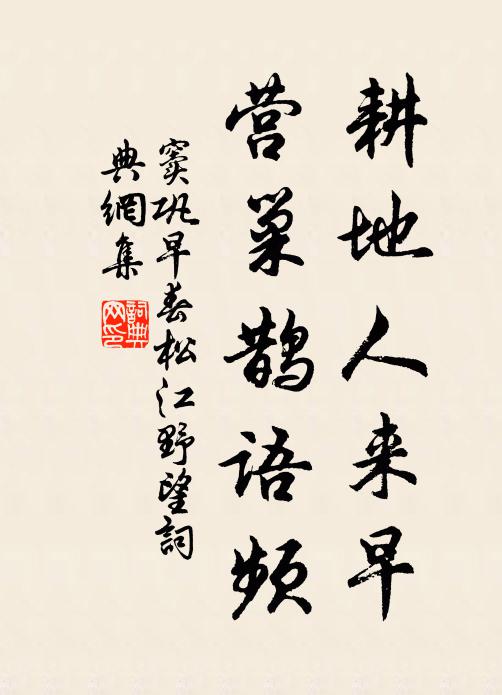 耕地人来早
营巢鹊语频
窦巩早春松江野望詞
典網集
詞典
网印